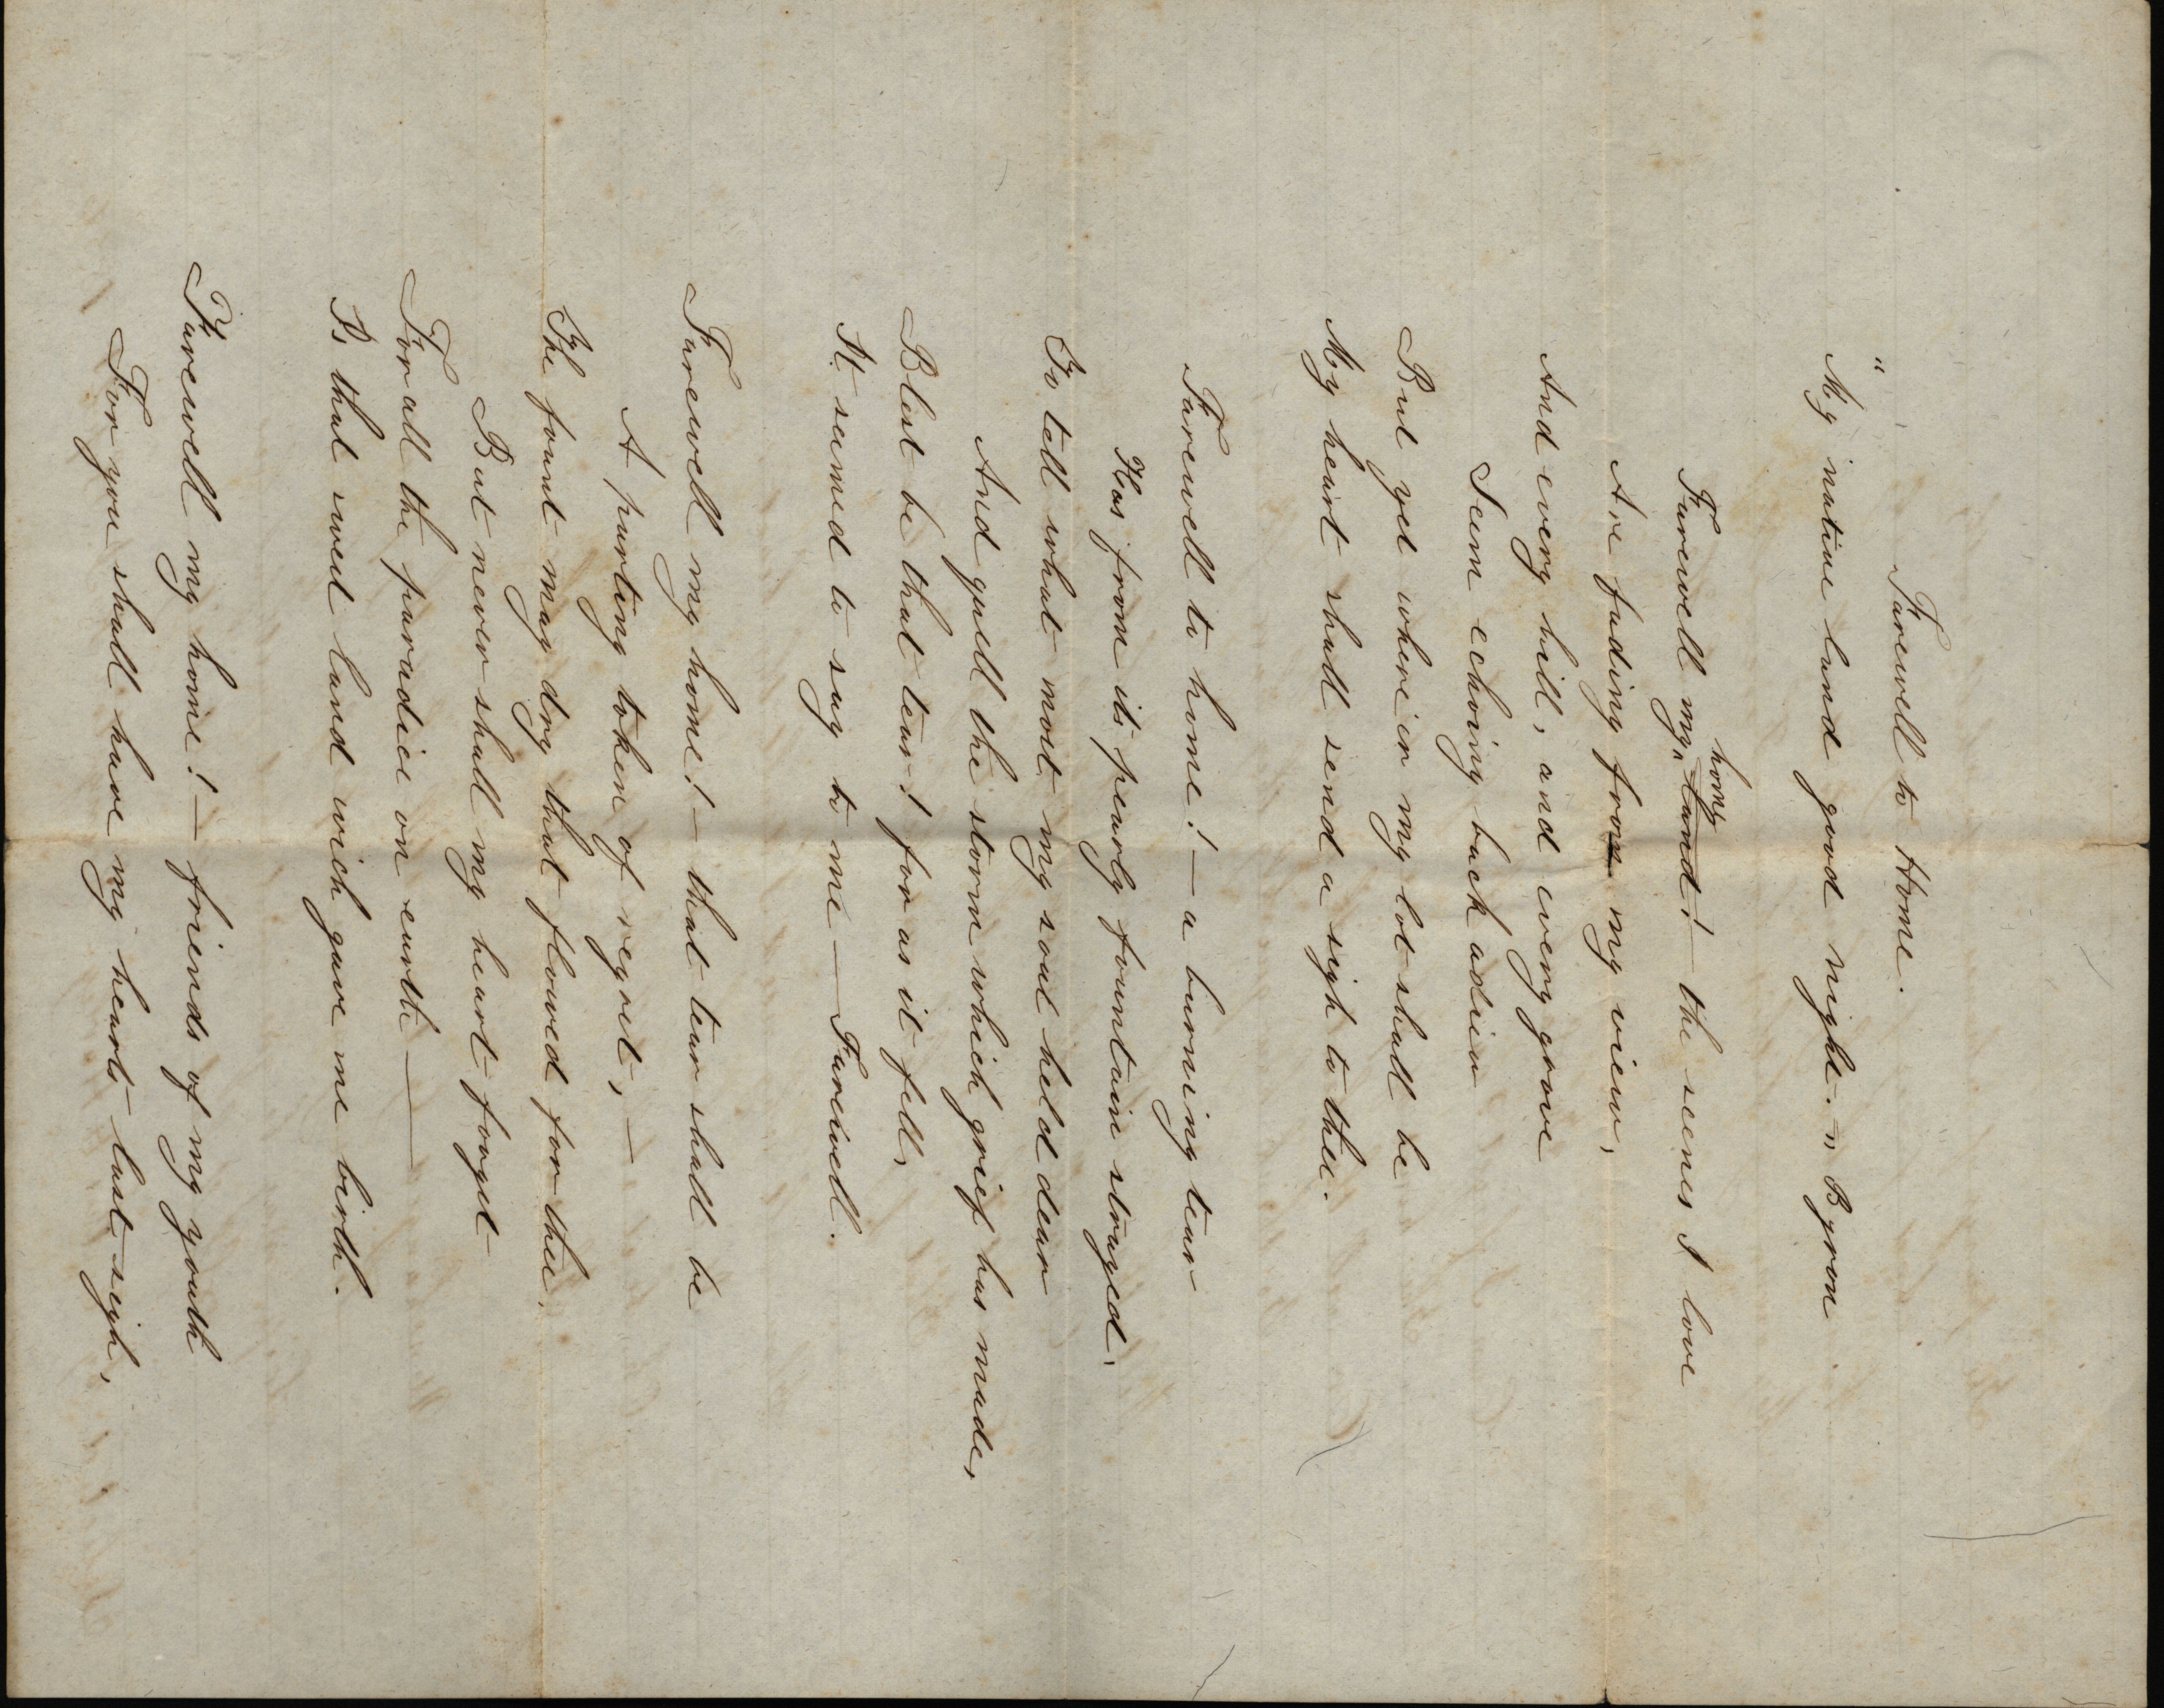 Farewell to Home.
"My native land good night." Byron
home
Farewell my land! – the scenes I love
Are fading from my view,
And every hill, and every grove
Seem echoing back adieu
But yet where'er my lot shall be
My heart shall send a sigh to thee.
Farewell to home! – a burning tear
Has from its pearly fountain strayed.
To tell what most my soul held dear
And quell the storm which grief has made,
Blest be that tear! for as it fell,
It seemed to say to me — Farewell.
Farewell my home! – that tear shall be
A parting token of regret, –
The fount may dry that flowed for thee,
But never shall my heart forget
For all the paradice on earth —
Is that sweet land wich gave me birth.
Farewell my home! – friends of my youth
For you shall have my hearts last sigh,